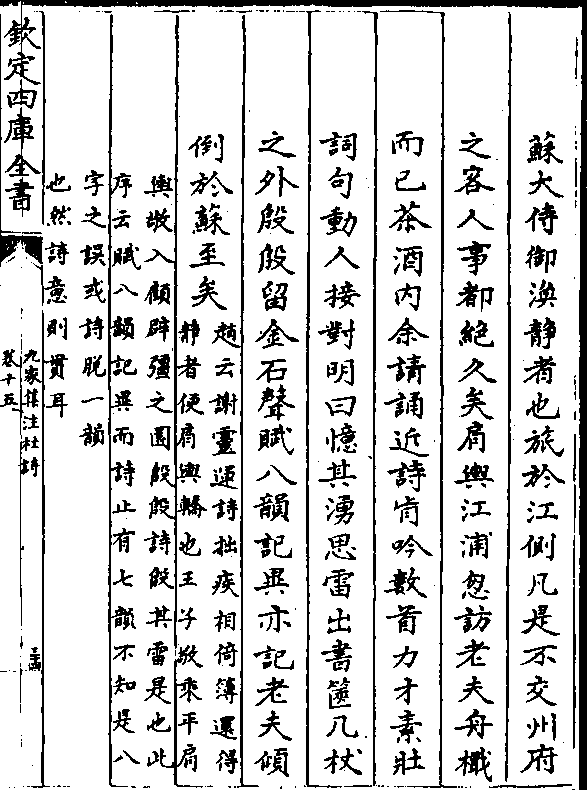 蘇大侍御渙静者也旅於江側凡是不交州府
之客人事都絶久矣肩輿江浦忽訪老夫舟檝
而已茶酒内余請誦近詩肯吟數首力才素壯
詞句動人接對明日憶其湧思雷出書篋几杖
之外殷殷留金石聲賦八韻記異亦記老夫傾
倒於蘇至矣
趙云謝靈運詩拙疾相倚簿還得
静者便肩輿轎也王子敬乘平肩
輿徑入顧辟疆之園殷殷詩殷其雷是也此
序云賦八韻記異而詩止有七韻不知是八
字之誤或詩脱一韻
也然詩意則貫耳
欽定四庫全書
九家集注杜詩
卷十五